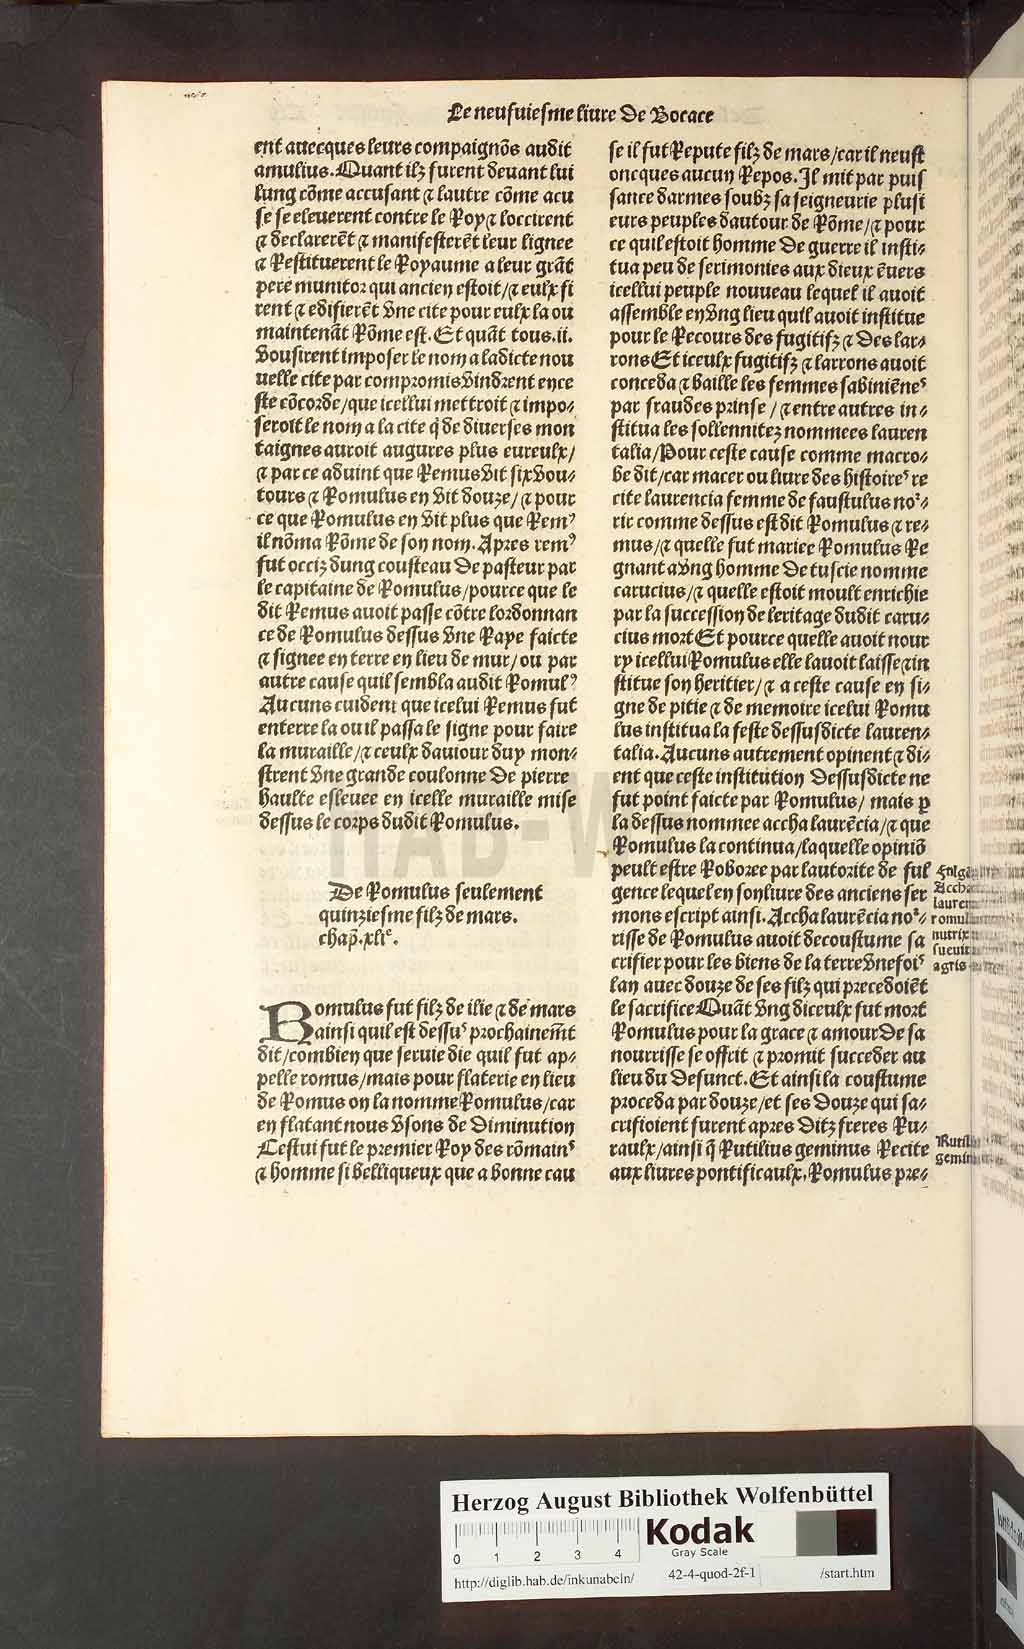 Le neufuiesme liure De Bocace
ent auecques leurs compaignõs audit
amulius. Quant ilz furent deuant lui
lung cõme accusant ⁊ lautre cõme acu
se se eleuerent contre le Roy ⁊ loccirent
⁊ declarerẽt ⁊ manifesterẽt leur lignee
⁊ Restituerent le Royaume a leur grãt
pere munitor qui ancien estoit/ ⁊ eulx fi
rent ⁊ edifierẽt vne cite pour eulx la ou
maintenãt Rõme est. Et quãt tous .ii.
vousirent imposer le nom a ladicte nou
uelle cite par compromis vindrent en ce
ste cõcorde/ que icellui mettroit ⁊ impo⸗
seroit le nom a la cite q̃ de diuerses mon
taignes auroit augures plus eureulx/
⁊ par ce aduint que Remus vit six vou⸗
tours ⁊ Romulus en vit douze/ ⁊ pour
ce que Romulus en vit plus que Remꝰ
il nõma Rõme de son nom. Apres remꝰ
fut occiz dung cousteau De pasteur par
le capitaine de Romulus/ pource que le
dit Remus auoit passe cõtre lordonnan
ce de Romulus dessus vne Raye faicte
⁊ signee en terre en lieu de mur/ ou par
autre cause quil sembla audit Romulꝰ
Aucuns cuident que icelui Remus fut
enterre la ou il passa le signe pour faire
la muraille/ ⁊ ceulx dauiour duy mon⸗
strent vne grande coulonne De pierre
haulte esleuee en icelle muraille mise
dessus le corps dudit Romulus.
De Romulus seulement
quinziesme filz de mars.
chap̃. xliᵉ.
Romulus fut filz de ilie ⁊ de mars
ainsi quil est dessuˢ prochainem̃t
dit/ combien que seruie die quil fut ap⸗
pelle romus/ mais pour flaterie en lieu
de Romus on la nomme Romulus/ car
en flatant nous vsons de Diminution
Cestui fut le premier Roy des rõmainˢ
⁊ homme si belliqueux que a bonne cau
se il fut Repute filz de mars/ car il neust
oncques aucun Repos. Il mit par puis
sance darmes soubz sa seigneurie plusi
eurs peuples dautour de Rõme/ ⁊ pour
ce quil estoit homme De guerre il insti⸗
tua peu de serimonies aux dieux ẽuers
icellui peuple nouueau lequel il auoit
assemble en vng lieu quil auoit institue
pour le Recours des fugitifz ⁊ Des lar⸗
rons Et iceulx fugitifz ⁊ larrons auoit
conceda ⁊ baille les femmes sabiniẽneˢ
par fraudes prinse / ⁊ entre autres in⸗
stitua les sollennitez nommees lauren
talia/ Pour ceste cause comme macro⸗
be dit/ car macer ou liure des histoireˢ re
cite laurencia femme de faustulus noꝛ⸗
rir comme dessus est dit Romulus ⁊ re⸗
mus/ ⁊ quelle fut mariee Romulus Re
gnant a vng homme De tuscie nomme
carucius/ ⁊ quelle estoit moult enrichie
par la succession de leritage dudit caru⸗
cius mort Et pource quelle auoit nour
ry icellui Romulus elle lauoit laisse ⁊ in
stitue son heritier/ ⁊ a ceste cause en si⸗
gne de pitie ⁊ de memoire icelui Romu
lus institua la feste dessusdicte lauren⸗
talia. Aucuns autrement opinent ⁊ di⸗
ent que ceste institution Dessusdicte ne
fut point faicte par Romulus/ mais ꝑ
la dessus nommee accha laurẽcia/ ⁊ que
Romulus la continua/ laquelle opiniõ
peult estre Roboree par lautorite de ful
gence lequel en son liure des anciens ser
mons escript ainsi. Accha laurẽcia noꝛ⸗
risse de Romulus auoit decoustume sa
crifier pour les biens de la terre vne foiˢ
lan auec douze de ses filz qui precedoiẽt
le sacrifice Quãt vng diceulx fut mort
Romulus pour la grace ⁊ amour De sa
nourrisse se offrit ⁊ promit succeder au
lieu du Defunct. Et ainsi la coustume
proceda par douze/ et ses Douze qui sa⸗
crifioient furent apres Ditz freres Ru⸗
raulx/ ainsi q̃ Rutilius geminus Recite
aux liures pontificaulx. Romulus pre⸗
Accha
nutrix
agris
Herzog August Bibliothek Wolfenbüttel
0 1 2 3 4
Kodak
Gray Scale
http://diglib.hab.de/inkunabeln/ 42-4-quod-2f-1 /start.htm
HAB-W